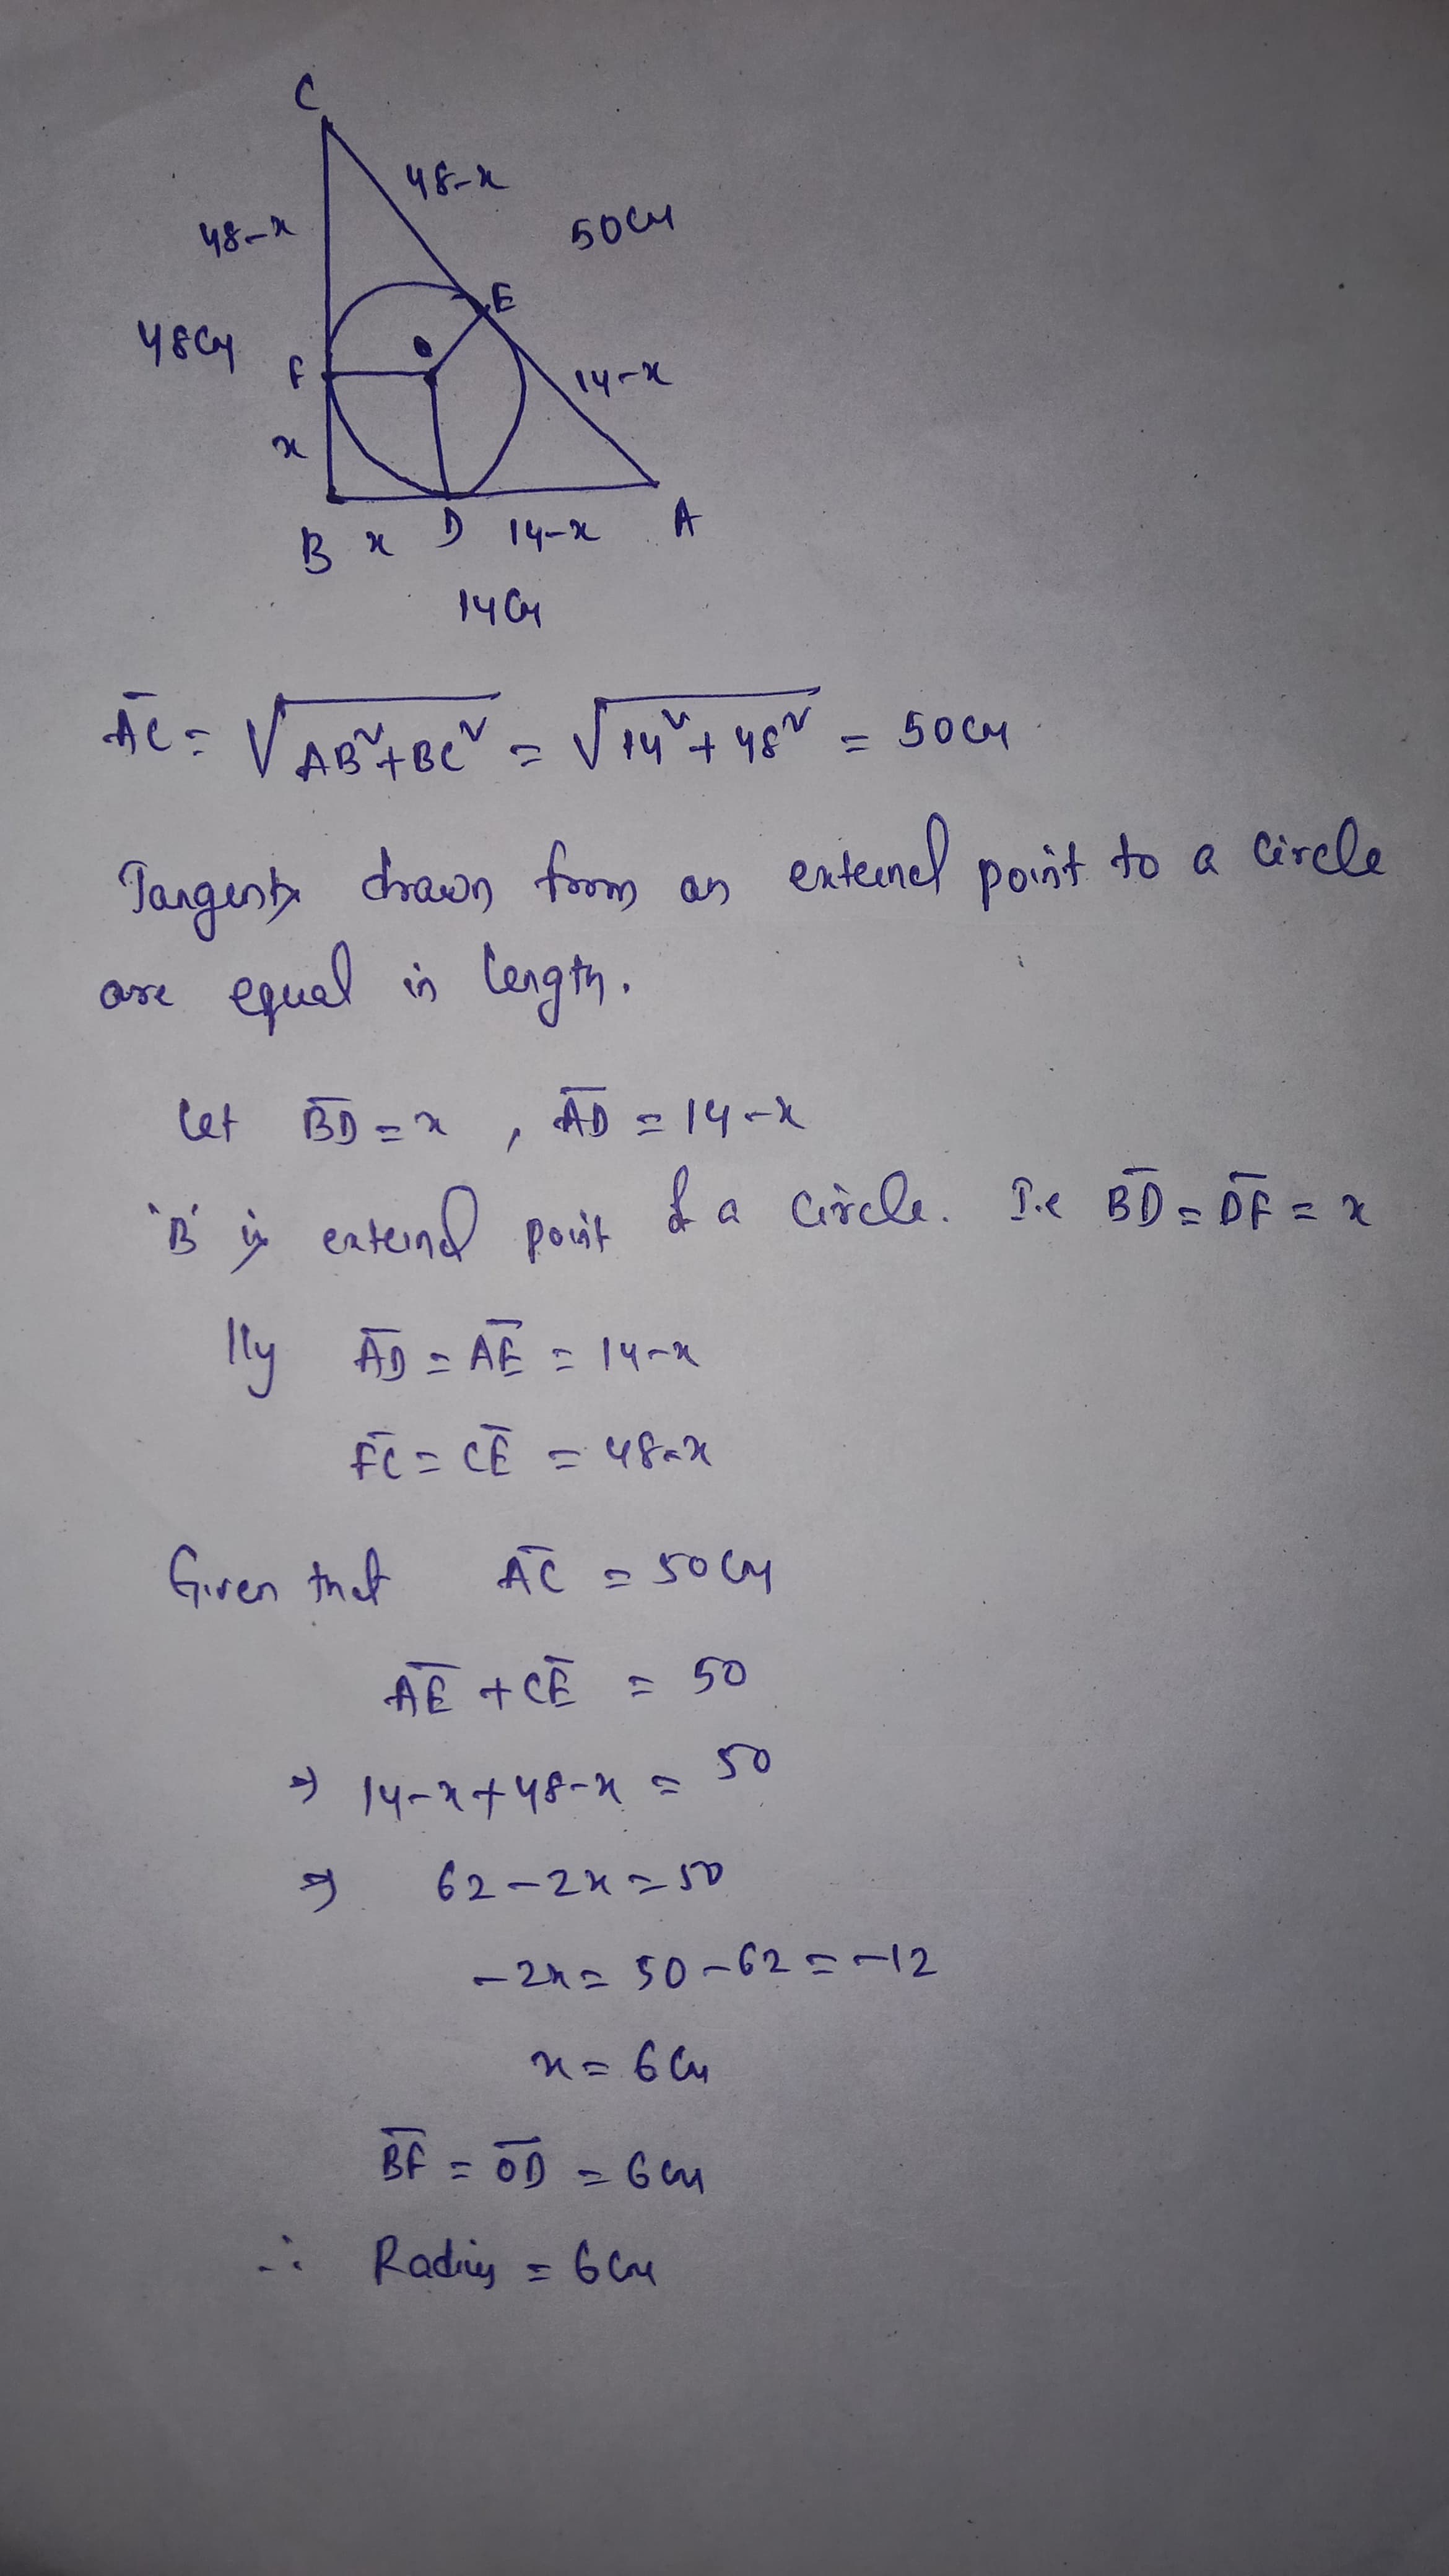 C
48-x
48-x
50cm
E
48cm
F
O
14-x
x
B x D 14-x A
14cm
AC = √AB²+BC² = √14²+48² = 50cm
Tangents drawn from an external point to a circle
are equal in length.
Let BD = x , AD = 14-x
'B' is external point of a circle. I.e BD = DF = x
lly AD = AE = 14-x
FC = CE = 48-x
Given that AC = 50cm
AE + CE = 50
⇒ 14-x+48-x = 50
⇒ 62-2x = 50
-2x = 50-62 = -12
x = 6cm
BF = OD = 6cm
∴ Radius = 6cm